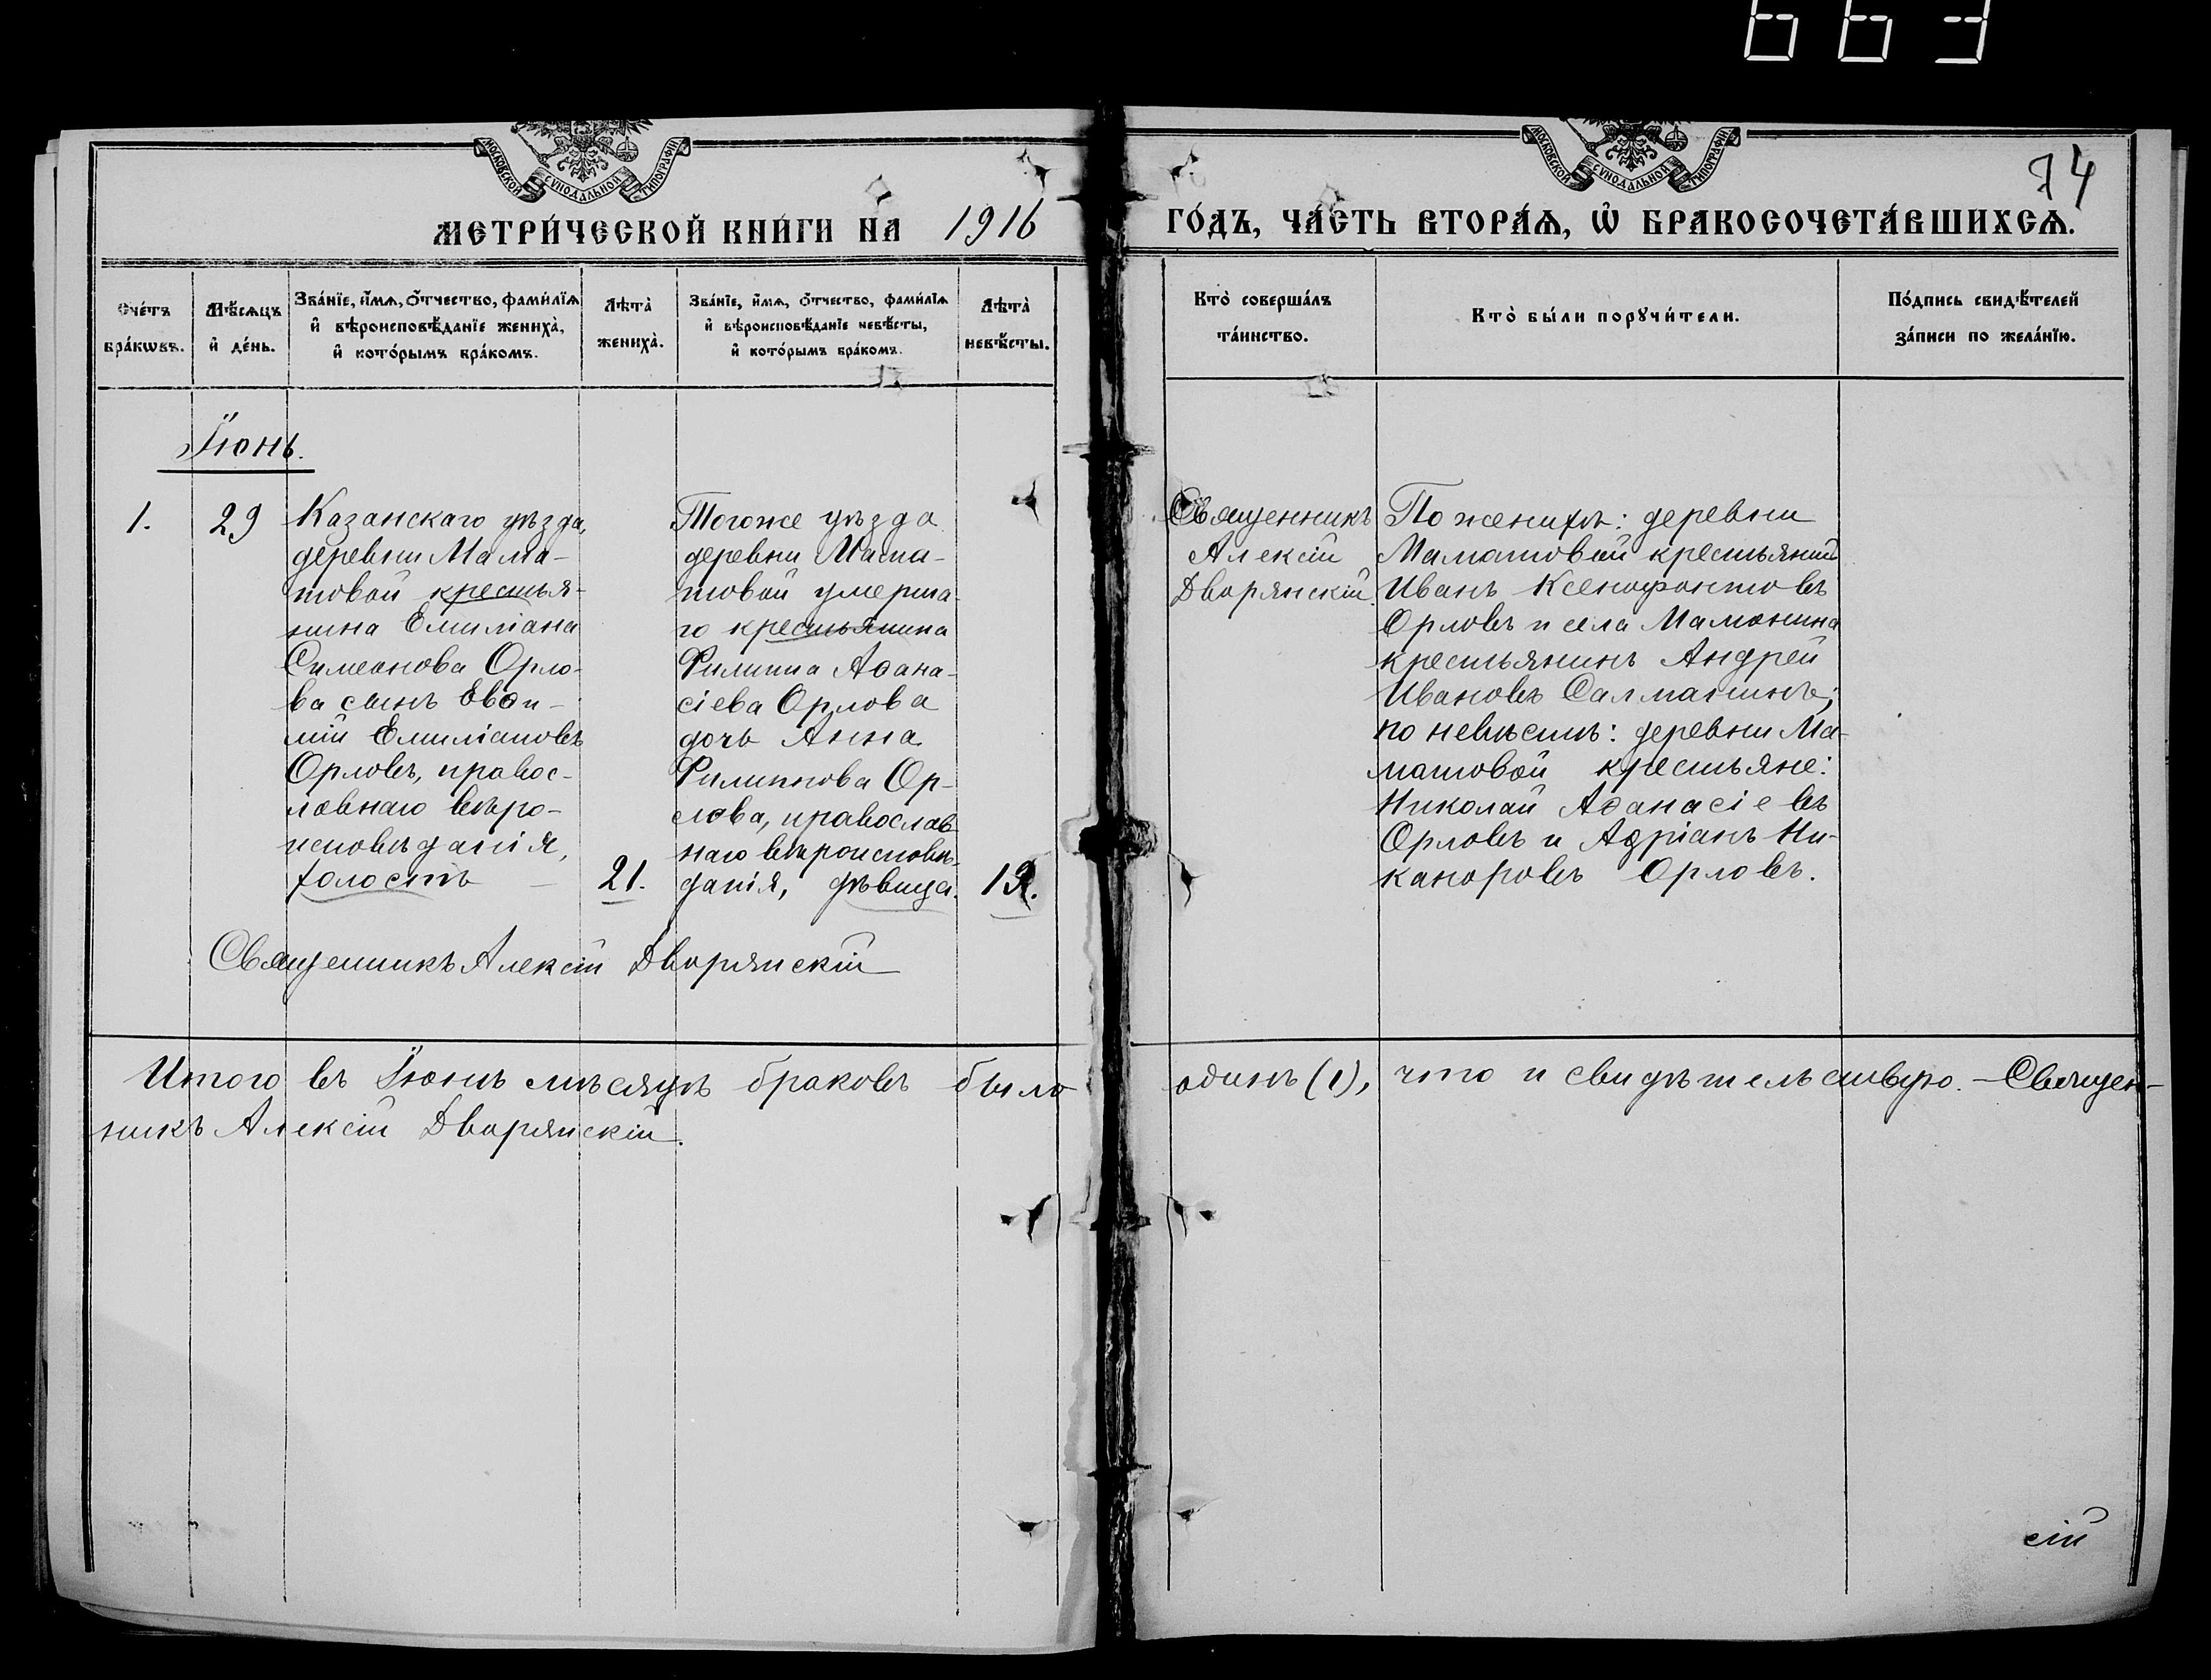 663
МОСКОВСКОЙ СУНОДАЛЬНОЙ ТИПОГРАФІИ
МОСКОВСКОЙ СУНОДАЛЬНОЙ ТИПОГРАФІИ
74
МЕТРИ́ЧЕСКОЙ КНИ́ГИ НА 1916
ГО́ДЪ, ЧА́СТЬ ВТОРА́Ѧ, Ѽ БРАКОСОЧЕТА́ВШИХСѦ.
Сче́тъ
бра́кѡвъ.
Мѣ́сѧцъ
и҆ де́нь.
Зва́нїе, и҆́мѧ, ѻ҆́тчество, фами́лїѧ
и҆ вѣроисповѣ́данїе жениха̀,
и҆ кото́рымъ бра́комъ.
Лѣта̀
жениха̀.
Зва́нїе, и҆́мѧ, ѻ҆́тчество, фами́лїѧ
и҆ вѣроисповѣ́данїе невѣ́сты,
и҆ кото́рымъ бра́комъ.
Лѣта̀
невѣ́сты.
Кто̀ соверша́лъ
та́инство.
Кто̀ бы́ли порꙋчи́тели.
По́дпись свидѣ́телей
за́писи по жела́нїю.
Іюнь.
1.
29
Казанскаго уѣзда,
деревни Мама-
товой крестья-
нина Емиліана
Симеонова Орло-
ва сынъ Евѳи-
мій Емиліановъ
Орловъ, правос-
лавнаго вѣро-
исповѣданія,
холостъ —
21.
Тогоже уѣзда
деревни Мама-
товой умерша-
го крестьянина
Филиппа Аѳана-
сіева Орлова
дочь Анна
Филиппова Ор-
лова, православ-
наго вѣроисповѣ-
данія, дѣвица.
Священникъ
Алексій
Дворянскій.
По женихѣ: деревни
Маматовой крестьянинъ
Иванъ Ксенофонтовъ
Орловъ и села Мамонина
крестьянинъ Андрей
Ивановъ Салмагинъ;
по невѣстѣ: деревни Ма-
матовой крестьяне:
Николай Аѳанасіевъ
Орловъ и Адріанъ Ни-
каноровъ Орловъ.
Священникъ Алексій Дворянскій
Итого въ Іюнѣ мѣсяцѣ браковъ было одинъ (1), что и свидѣтельствую. — Священ-
никъ Алексій Дворянскій.
сій